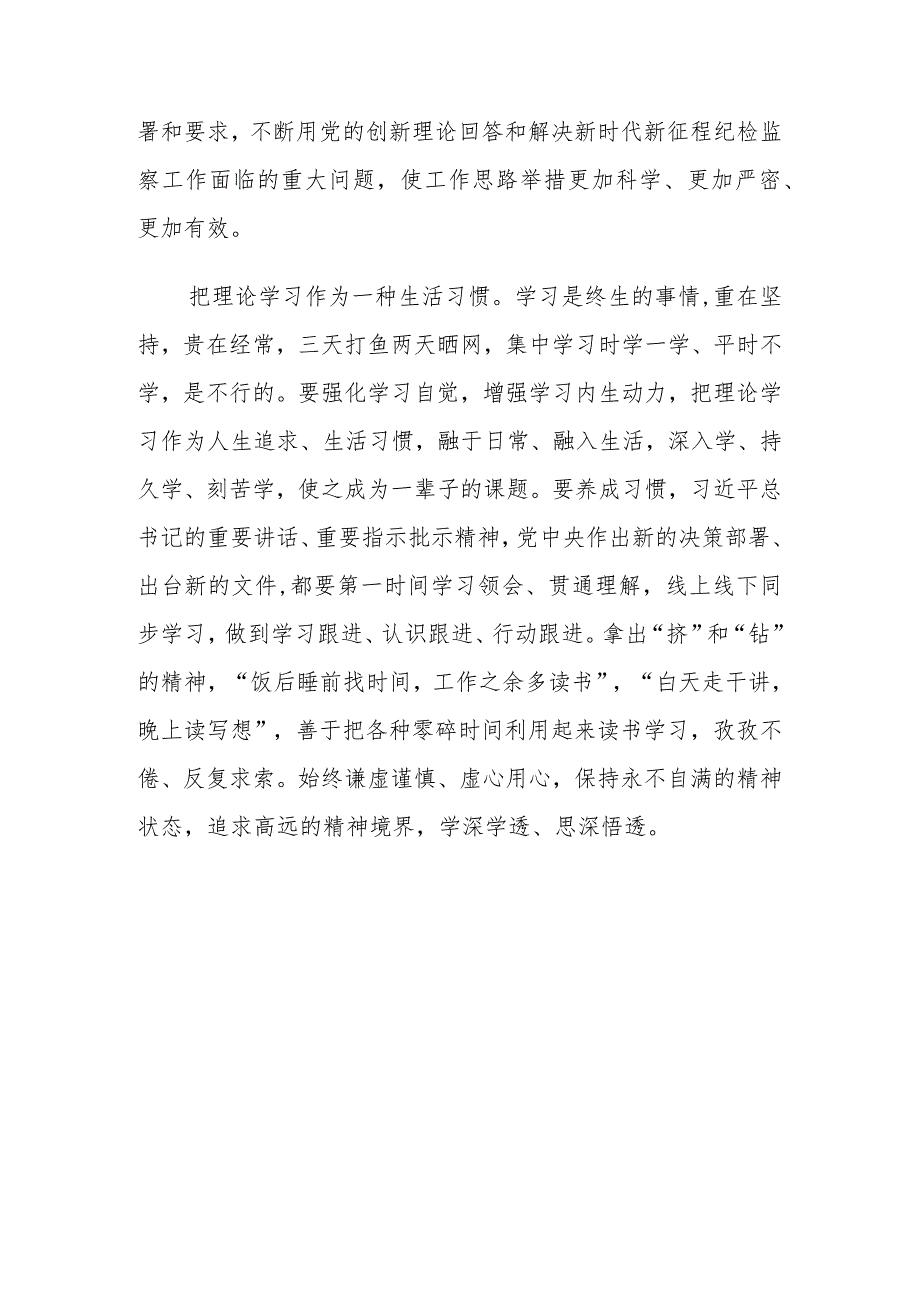 署和要求，不断用党的创新理论回答和解决新时代新征程纪检监
察工作面临的重大问题，使工作思路举措更加科学、更加严密、
更加有效。
把理论学习作为一种生活习惯。学习是终生的事情,重在坚
持，贵在经常，三天打鱼两天晒网，集中学习时学一学、平时不
学，是不行的。要强化学习自觉，增强学习内生动力，把理论学
习作为人生追求、生活习惯，融于日常、融入生活，深入学、持
久学、刻苦学，使之成为一辈子的课题。要养成习惯，习近平总
书记的重要讲话、重要指示批示精神，党中央作出新的决策部署、
出台新的文件,都要第一时间学习领会、贯通理解，线上线下同
步学习，做到学习跟进、认识跟进、行动跟进。拿出“挤”和“钻”
的精神，“饭后睡前找时间，工作之余多读书”，“白天走干讲，
晚上读写想”，善于把各种零碎时间利用起来读书学习，孜孜不
倦、反复求索。始终谦虚谨慎、虚心用心，保持永不自满的精神
状态，追求高远的精神境界，学深学透、思深悟透。